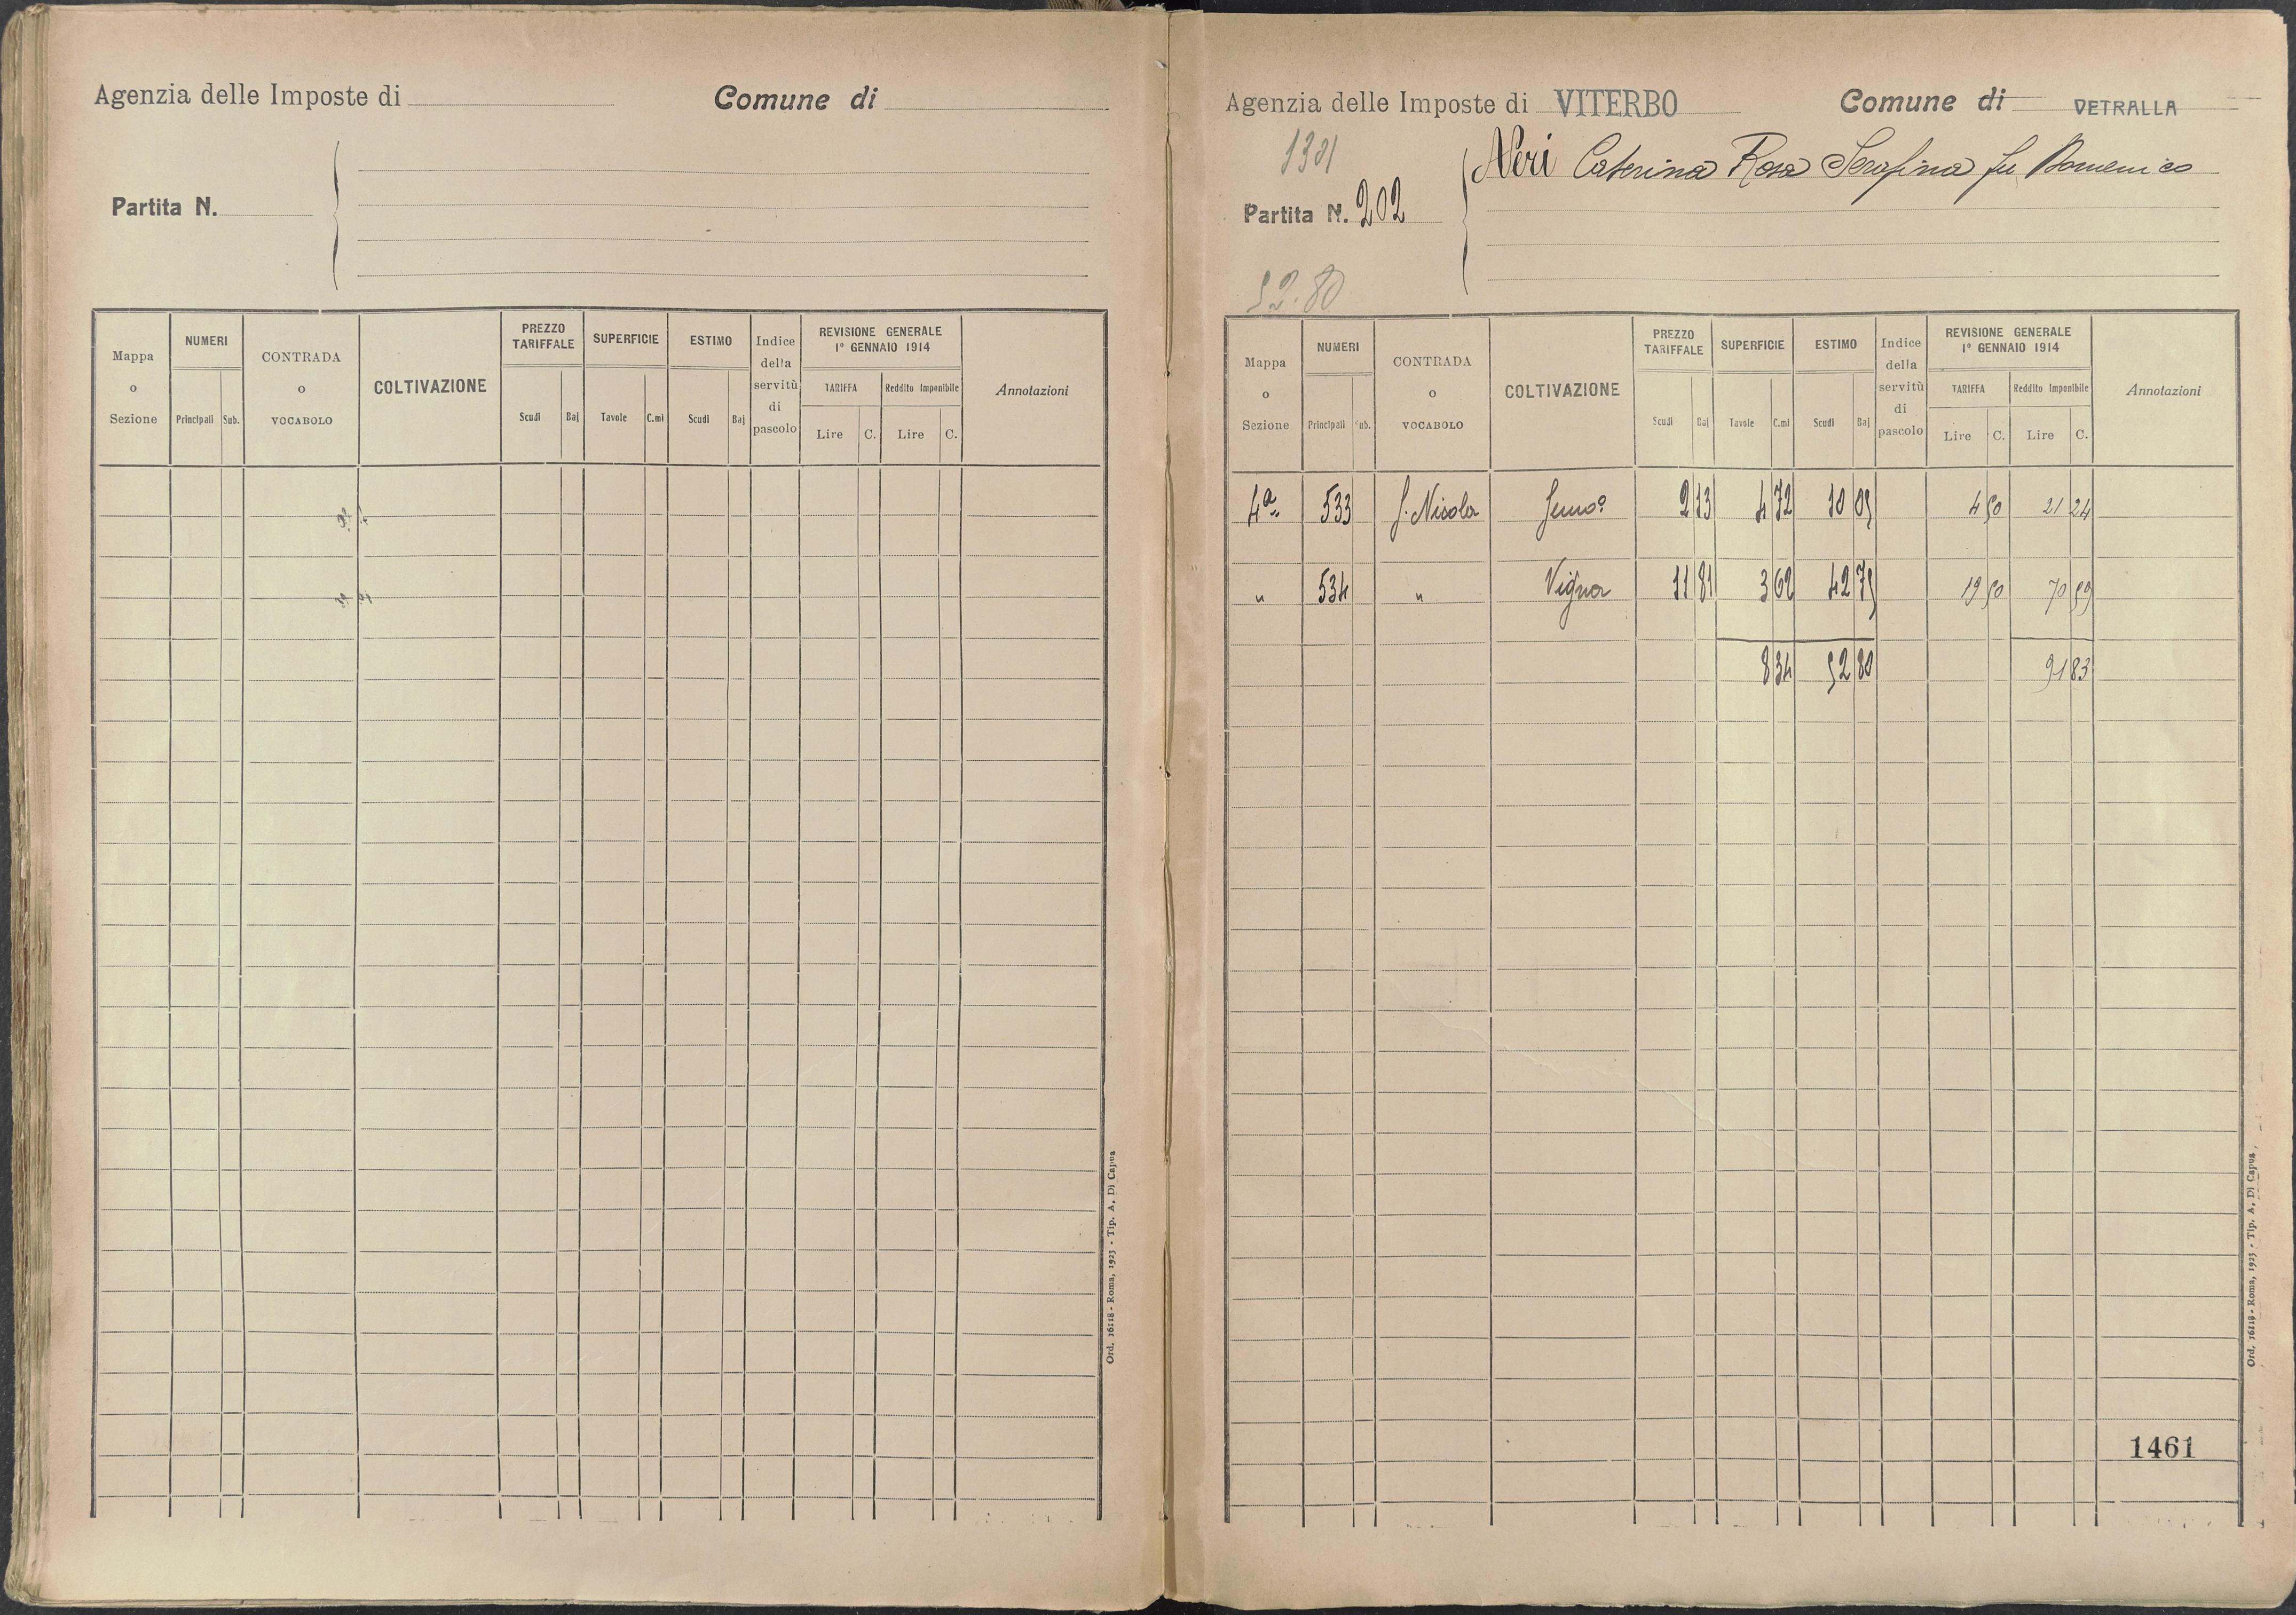 Agenzia delle Imposte di
Comune di
Partita N.
Mappa o Sezione
NUMERI
Principali
Sub.
CONTRADA o VOCABOLO
COLTIVAZIONE
PREZZO TARIFFALE
Scudi
Baj
SUPERFICIE
Tavole
C.mi
ESTIMO
Scudi
Baj
Indice della servitù di pascolo
REVISIONE GENERALE
1º GENNAIO 1914
TARIFFA
Reddito Imponibile
Lire
C.
Lire
C.
Annotazioni
Ord. 16118 - Roma, 1923 - Tip. A. Di Capua
Agenzia delle Imposte di VITERBO
Comune di VETRALLA
1301
Neri Caterina Rosa Serafina fu Domenico
Partita N. 202
52.80
Mappa o Sezione
NUMERI
Principali
Sub.
CONTRADA o VOCABOLO
COLTIVAZIONE
PREZZO TARIFFALE
Scudi
Baj
SUPERFICIE
Tavole
C.mi
ESTIMO
Scudi
Baj
Indice della servitù di pascolo
REVISIONE GENERALE
1º GENNAIO 1914
TARIFFA
Reddito Imponibile
Lire
C.
Lire
C.
Annotazioni
4ª 533 S. Nicola Semº 2 13 4 72 10 05 4 50 21 24
" 534 " Vigna 11 81 3 62 42 75 19 50 70 59
8 34 52 80 91 83
1461
Ord. 16118 - Roma, 1923 - Tip. A. Di Capua